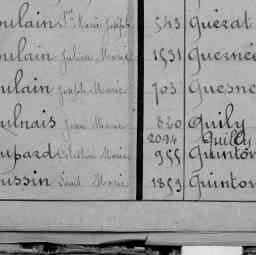 oulain Marie Joseph 543 Guérat
oulain Julien Marie 1531 Guesné
oulain Joseph Marie 703 Guesne
ulnais Jean Marie 820 Guily
2094 Guilly
upard Célestin Marie 955 Guinton
oussin Louis Marie 1859 Guinton